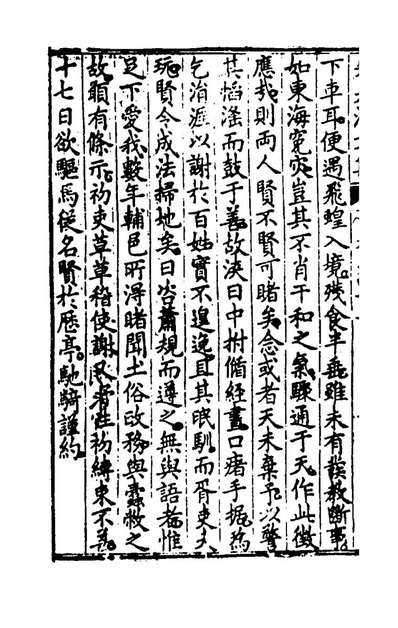 下車耳便遇飛蝗入境殘食半畝雖未有誤教斷事
如東海冤灾豈其不肖干和之氣驟通于天作此徵
應哉則兩人賢不賢可睹矣念或者天未棄予以警
其慆滛而鼓于善故浹日中拊循經畫口瘏手掘為
乞消涯以謝於百姓實不遑逸且其氓馴而胥吏
玩賢令成法掃地矣曰咨蕭規而遵之無與語者惟
足下愛我數年輔邑所淂睹聞土俗改務與蠹敝之
故願有條示初吏草草稽使謝又
十七日欲驅馬從名賢於歷亭馳騎謹約